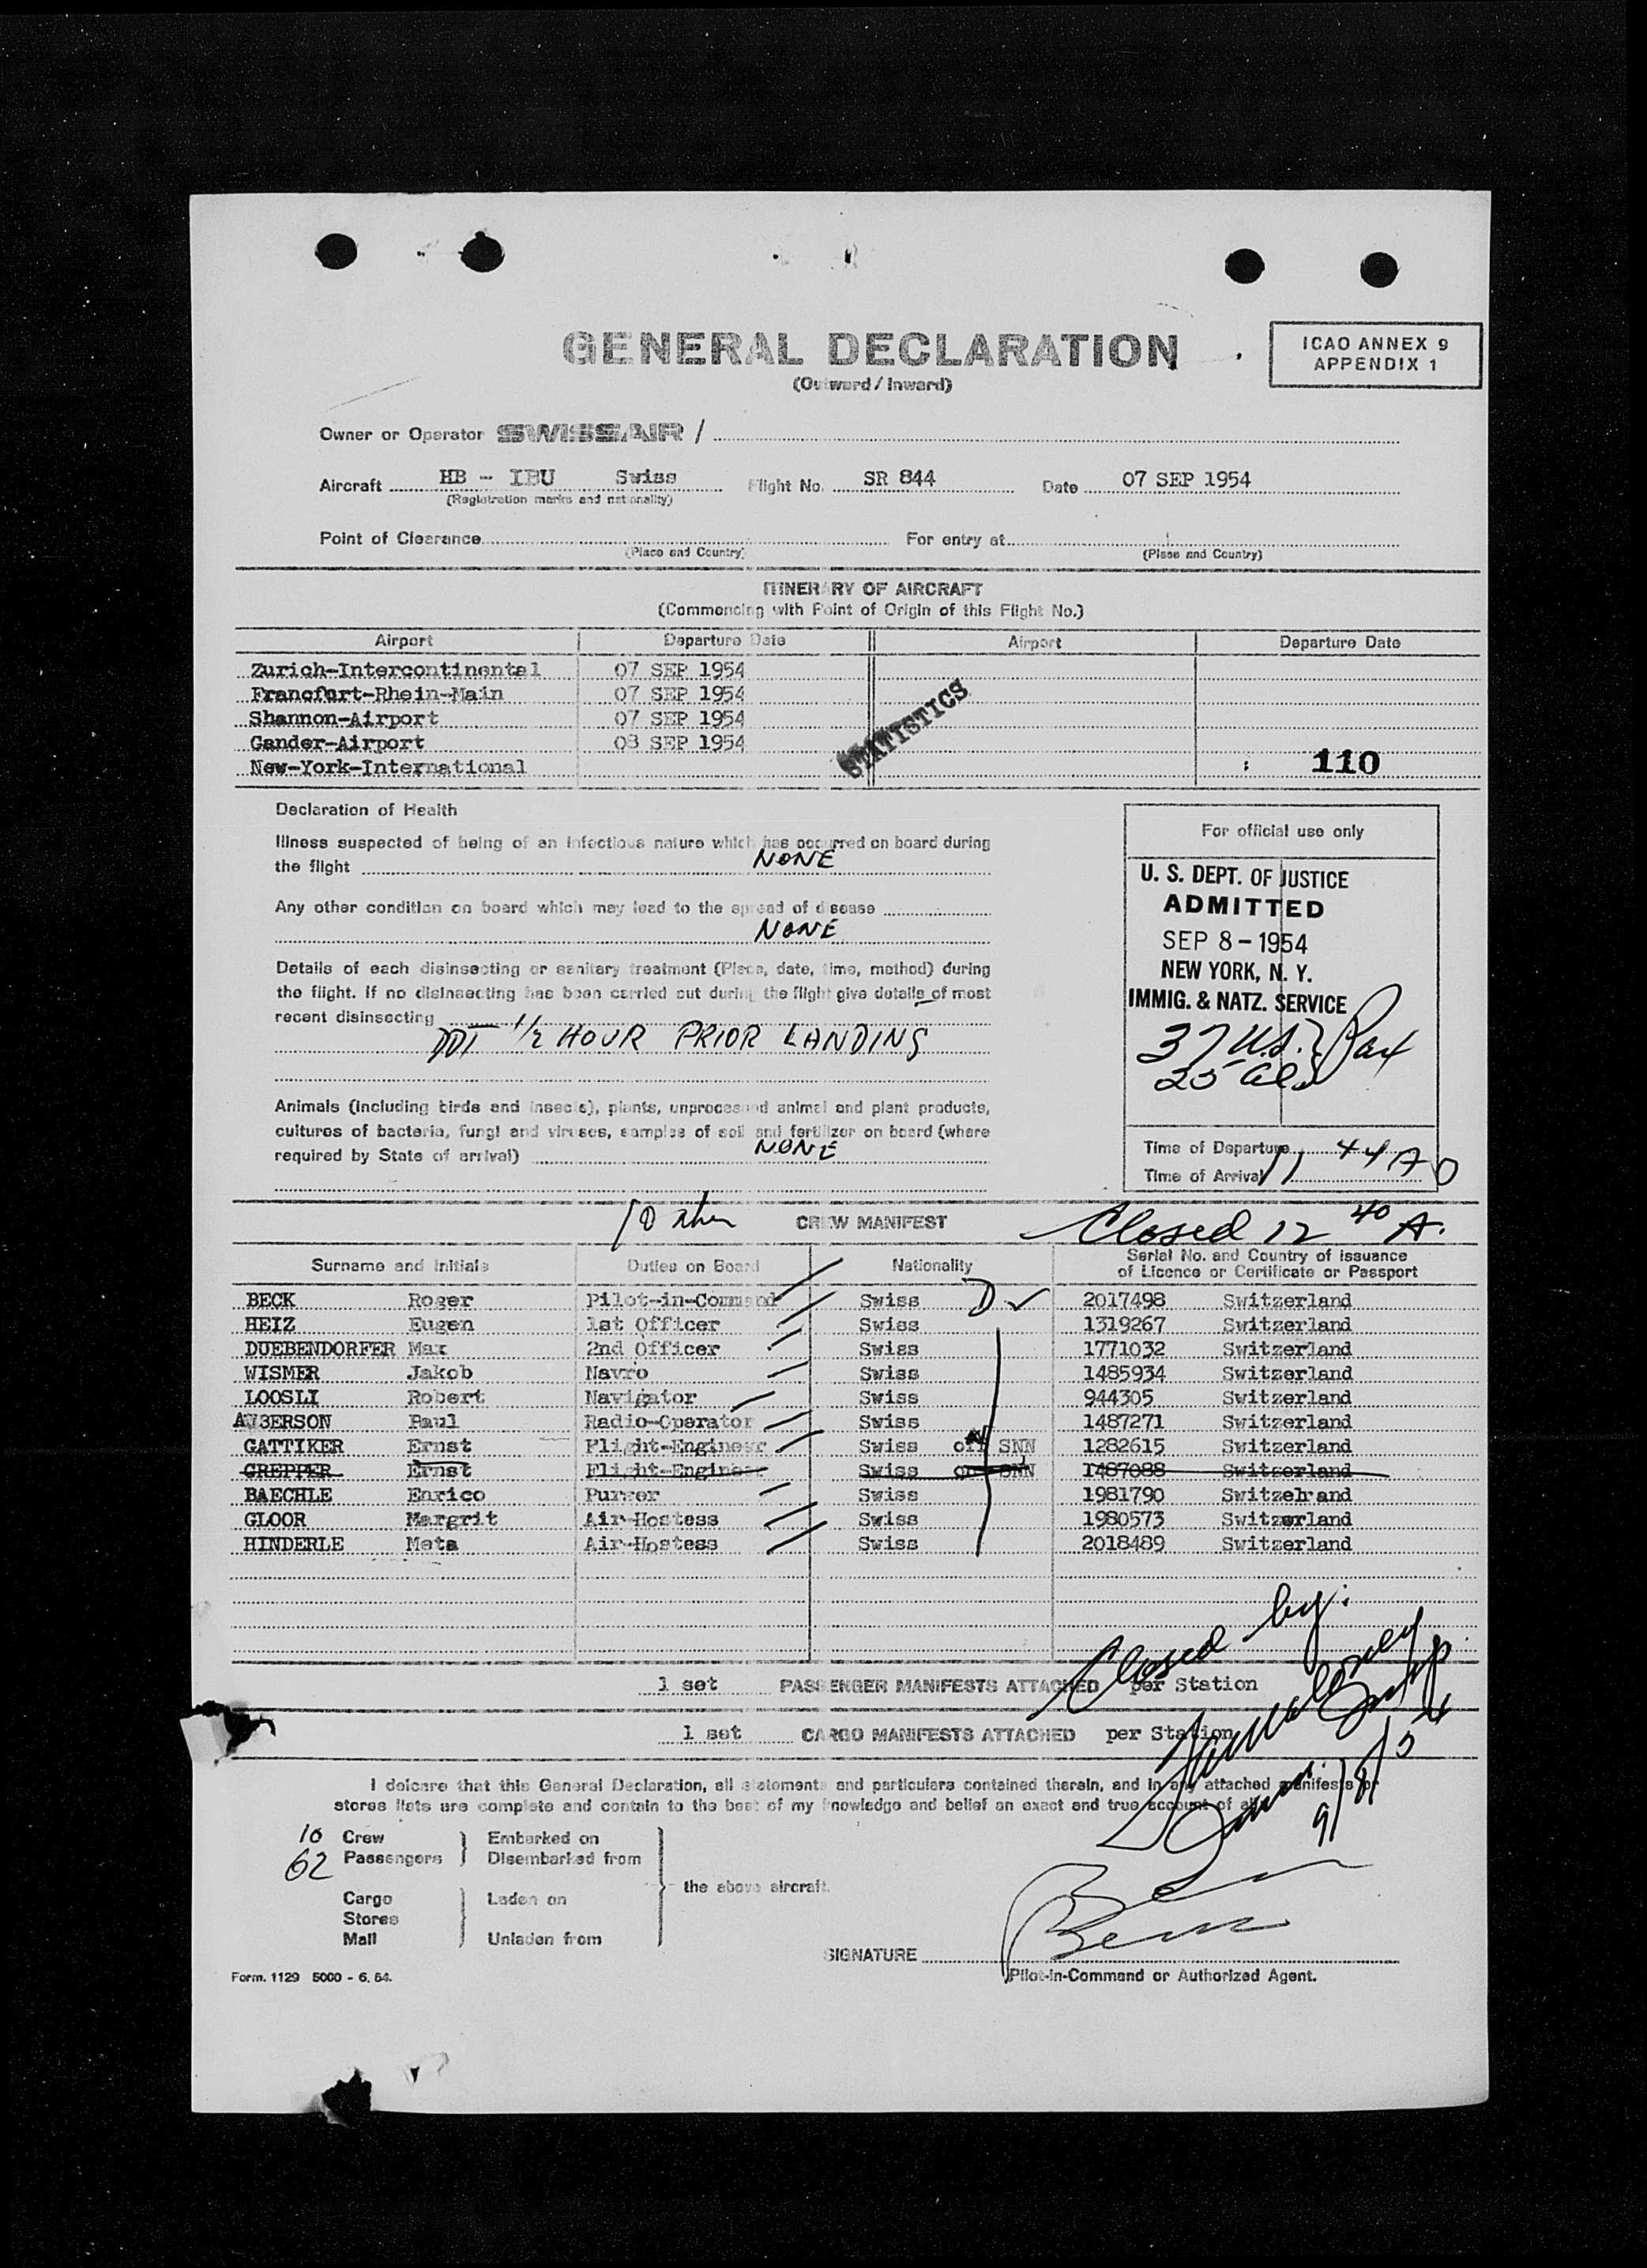 GENERAL DECLARATION
(Outward / Inward)
ICAO ANNEX 9
APPENDIX 1
Owner or Operator SWISSAIR /
Aircraft HB - IBU Swiss Flight No. SR 844 Date 07 SEP 1954
(Registration marks and nationality)
Point of Clearance For entry at
(Place and Country) (Place and Country)
ITINERARY OF AIRCRAFT
(Commencing with Point of Origin of this Flight No.)
Airport Departure Date Airport Departure Date
Zurich-Intercontinental 07 SEP 1954
Francfurt-Rhein-Main 07 SEP 1954
Shannon-Airport 07 SEP 1954
Gander-Airport 08 SEP 1954
New-York-International
STATISTICS
110
Declaration of Health
Illness suspected of being of an infectious nature which has occurred on board during
the flight NONE
Any other condition on board which may lead to the spread of disease
NONE
Details of each disinsecting or sanitary treatment (Place, date, time, method) during
the flight. If no disinsecting has been carried out during the flight give details of most
recent disinsecting
DDT 1/2 HOUR PRIOR LANDING
Animals (including birds and insects), plants, unprocessed animal and plant products,
cultures of bacteria, fungi and viruses, samples of soil and fertilizer on board (where
required by State of arrival) NONE
For official use only
U. S. DEPT. OF JUSTICE
ADMITTED
SEP 8 - 1954
NEW YORK, N. Y.
IMMIG. & NATZ. SERVICE
37 U.S. } Pax
25 als
Time of Departure
Time of Arrival 11 44 A
CREW MANIFEST
Closed 12 40 A.
Surname and Initials Duties on Board Nationality Serial No. and Country of issuance
of Licence or Certificate or Passport
BECK Roger Pilot-in-Command Swiss D ✓ 2017498 Switzerland
HEIZ Eugen 1st Officer Swiss 1319267 Switzerland
DUEBENDORFER Max 2nd Officer Swiss 1771032 Switzerland
WISMER Jakob Navro Swiss 1485934 Switzerland
LOOSLI Robert Navigator Swiss 944305 Switzerland
Paul Radio-Operator Swiss 1487271 Switzerland
GATTIKER Ernst Flight-Engineer Swiss SNN 1282615 Switzerland
GREPPER Ernst Flight-Engineer Swiss on SNN 1487088 Switzerland
BAECHLE Enrico Purser Swiss 1981790 Switzelrand
GLOOR Margrit Air-Hostess Swiss 1980573 Switzerland
HINDERLE Meta Air-Hostess Swiss 2018489 Switzerland
Closed by:
1 set PASSENGER MANIFESTS ATTACHED per Station
1 set CARGO MANIFESTS ATTACHED per Station
9/8/54
I delcare that this General Declaration, all statements and particulars contained therein, and in any attached manifests or
stores lists are complete and contain to the best of my knowledge and belief an exact and true account of all
10 Crew } Embarked on
62 Passengers } Disembarked from
the above aircraft.
Cargo Laden on
Stores
Mail Unladen from
SIGNATURE
Pilot-in-Command or Authorized Agent.
Form. 1129 5000 - 6. 54.